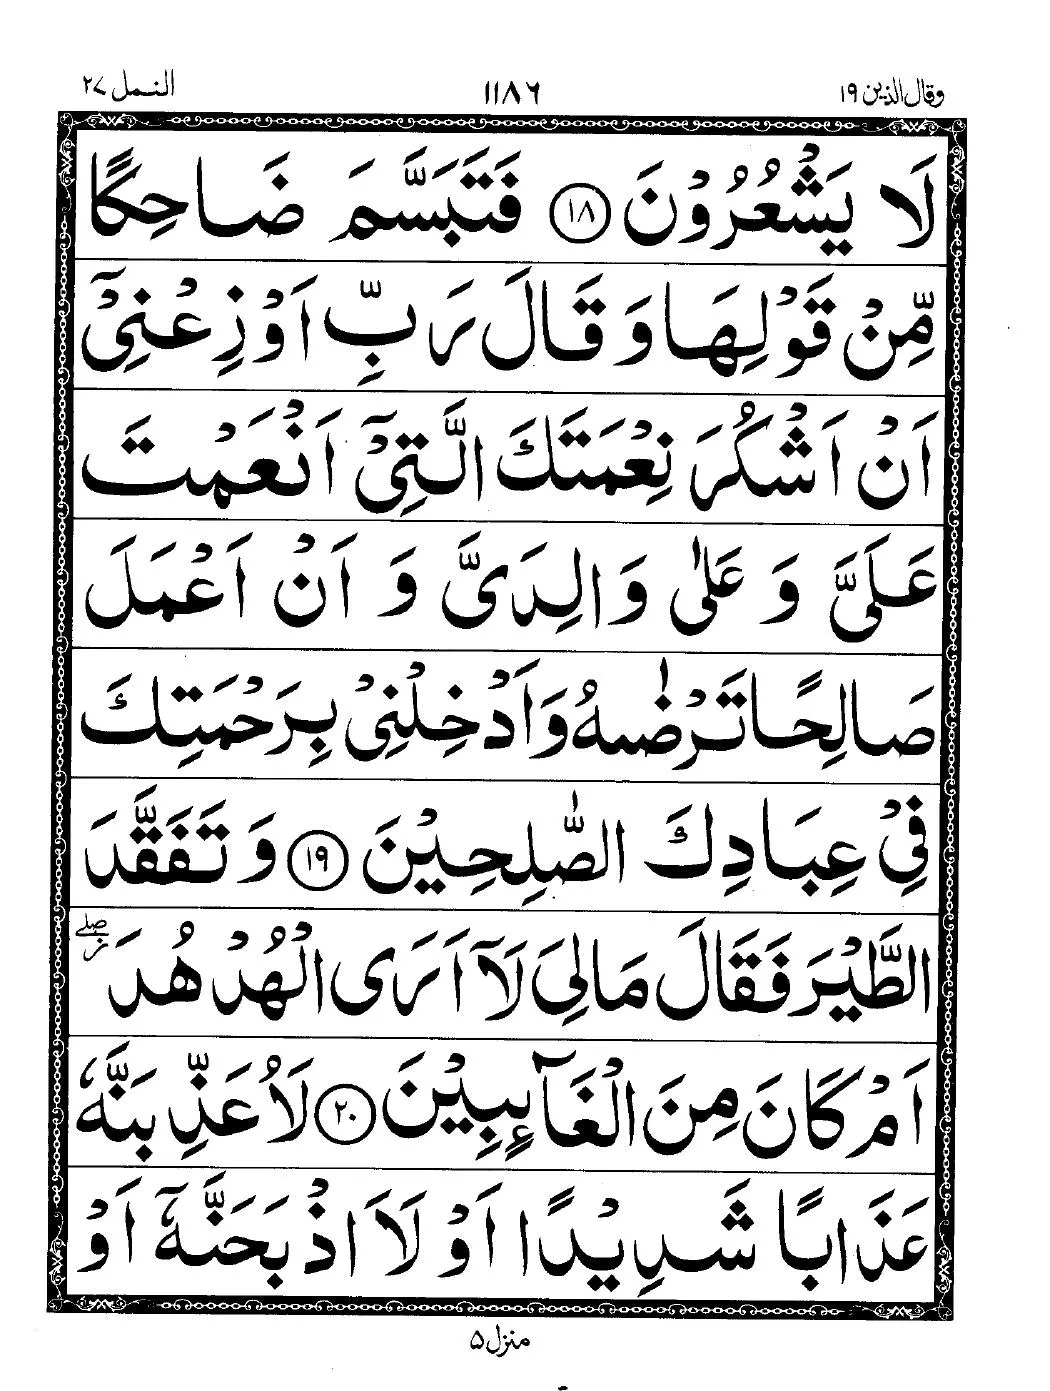 وقال الذين ١٩ ١١٨٦ النمل ٢٧
لَا يَشْعُرُوْنَ ﴿١٨﴾ فَتَبَسَّمَ ضَاحِكًا
مِّنْ قَوْلِهَا وَ قَالَ رَبِّ اَوْزِعْنِیْۤ
اَنْ اَشْكُرَ نِعْمَتَكَ الَّتِیْۤ اَنْعَمْتَ
عَلَیَّ وَ عَلٰى وَالِدَیَّ وَ اَنْ اَعْمَلَ
صَالِحًا تَرْضٰىهُ وَ اَدْخِلْنِیْ بِرَحْمَتِكَ
فِیْ عِبَادِكَ الصّٰلِحِیْنَ ﴿١٩﴾ وَ تَفَقَّدَ
الطَّیْرَ فَقَالَ مَا لِیَ لَاۤ اَرَى الْهُدْهُدَ ز صلے
اَمْ كَانَ مِنَ الْغَآىِٕبِیْنَ ﴿٢٠﴾ لَاُعَذِّبَنَّهٗ
عَذَابًا شَدِیْدًا اَوْ لَاَاذْبَحَنَّهٗۤ اَوْ
منزل ٥